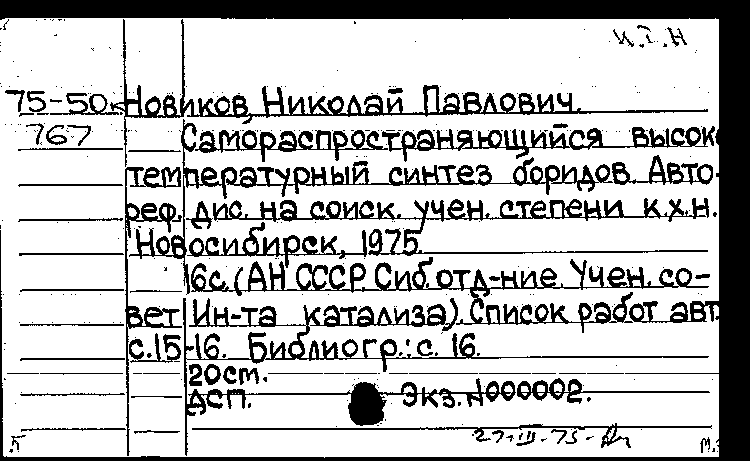 И.I.Н
75-50к Новиков, Николай Павлович.
767 Самораспространяющийся высоко
температурный синтез боридов. Авто-
реф. дис. на соиск. учен. степени к.х.н.
Новосибирск, 1975.
16с. (АН СССР. Сиб. отд-ние. Учен. со-
вет Ин-та катализа). Список работ авт.
с.15-16. Библиогр.: с. 16.
20см.
ДСП. Экз. №000002.
27-III-75-